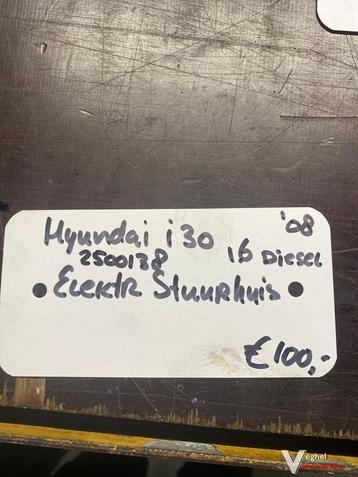 Hyundai i30 '08
2500138 16 Diesel
Elektr Stuurhuis
€100,-
Veghel